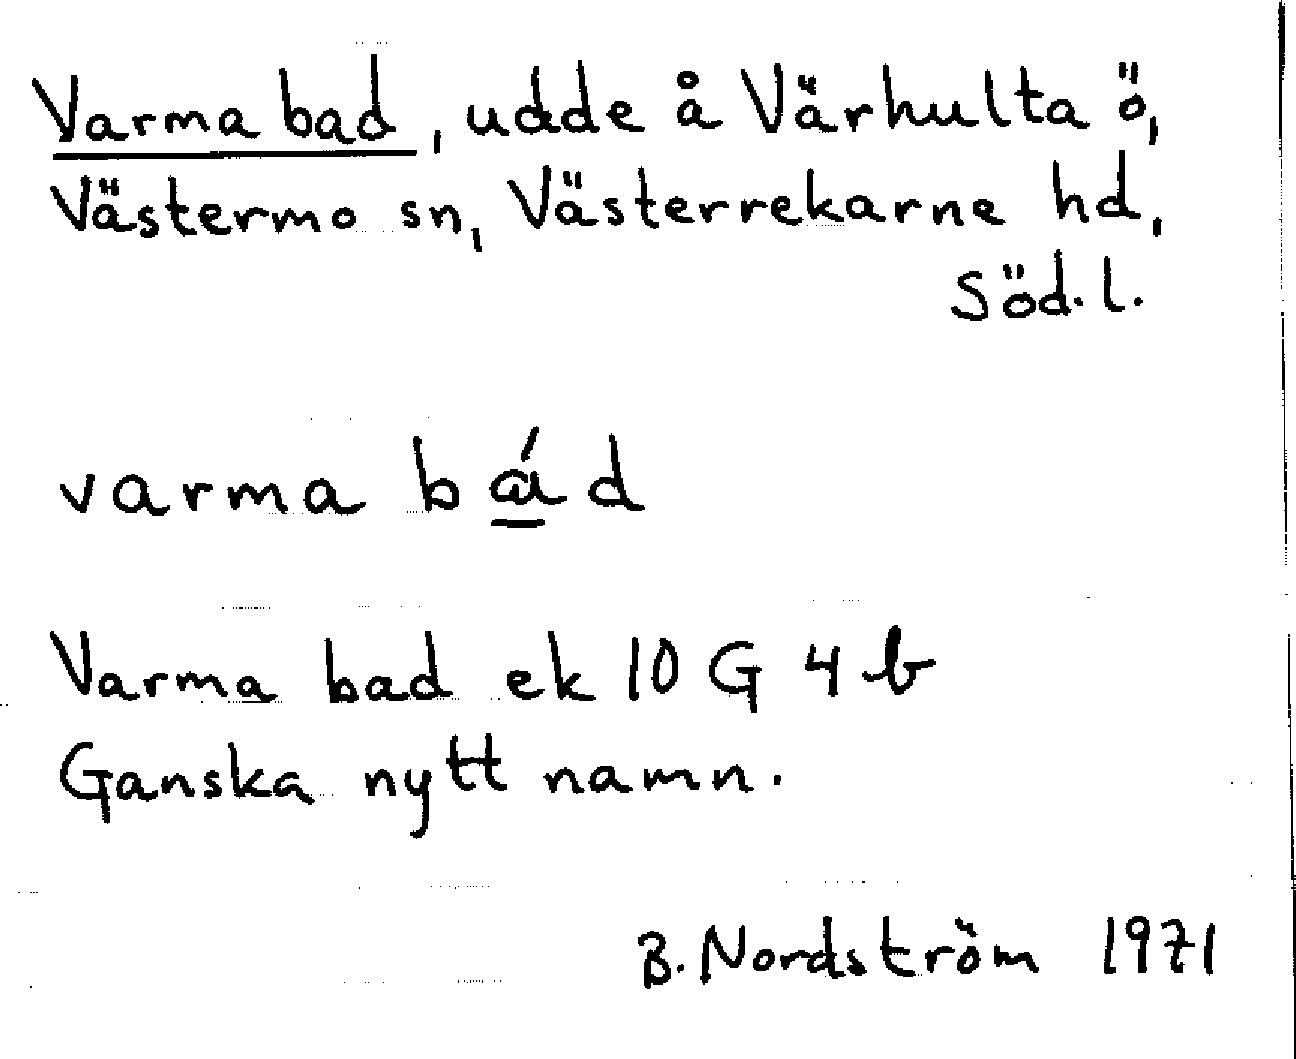 Varma bad, udde å Värhulta ö,
Västermo sn, Västerrekarne hd,
Söd. l.
varma bá̱d
Varma bad ek 10 G 4 b
Ganska nytt namn.
B. Nordström 1971